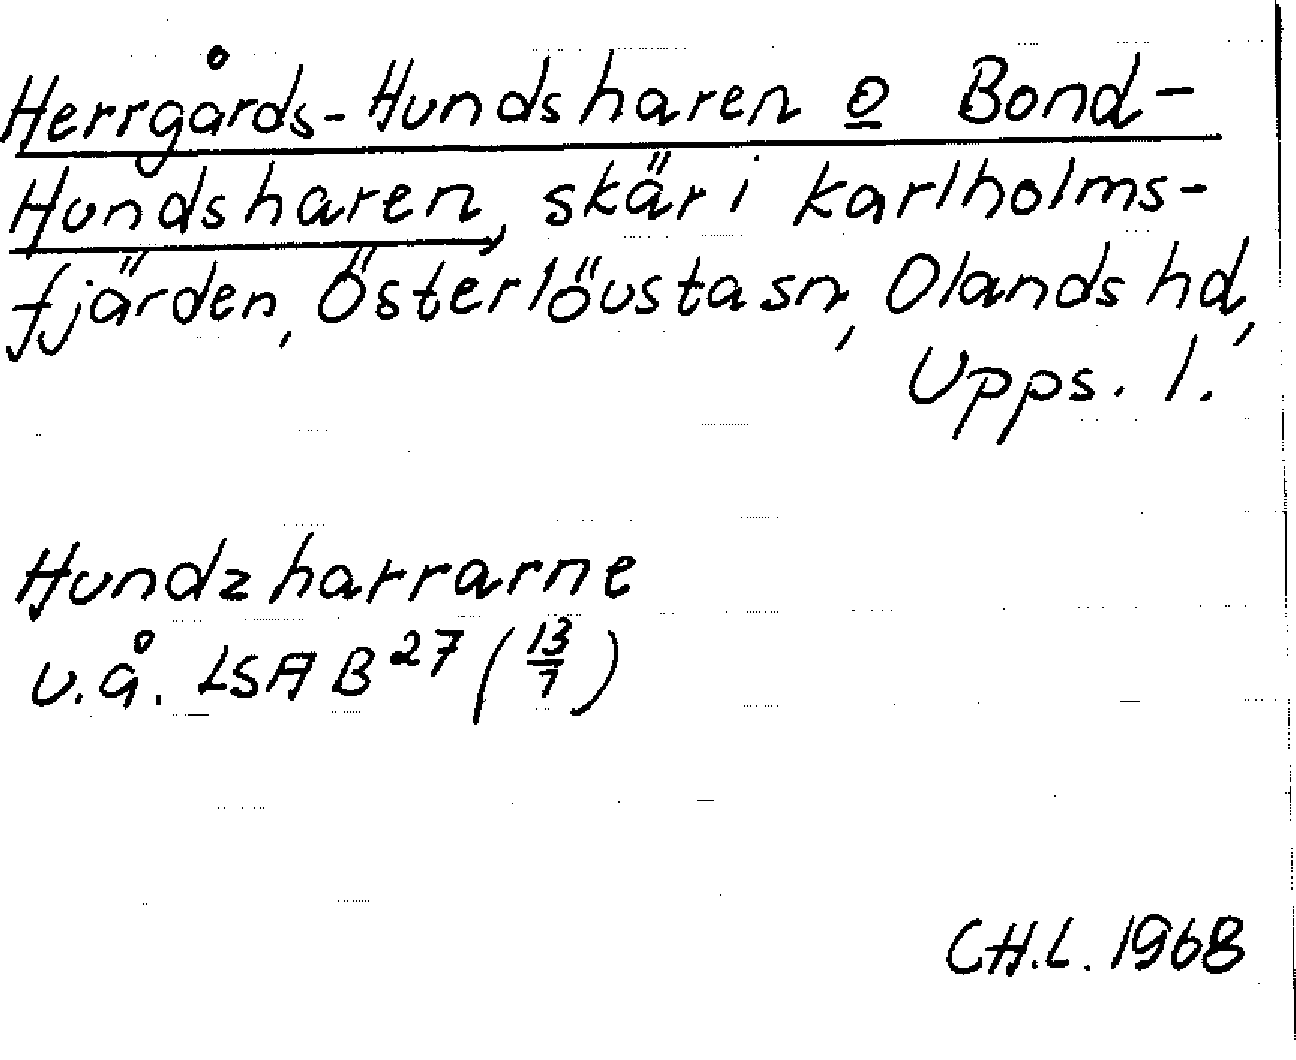 Herrgårds-Hundsharen o Bond-
Hundsharen, skär i Karlholms-
fjärden, Österlövsta sn, Olands hd,
Upps. l.
Hundzharrarne
u.å. LSA B 27 (13/7)
CH.L. 1968